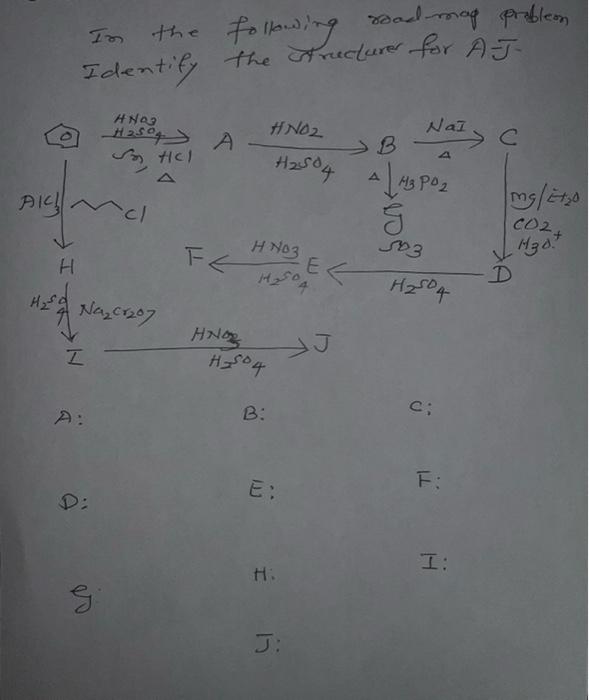 In the following road-map problem
Identify the structures for A-J-
HNO3
H2SO4
Sn, HCl
Δ
A
HNO2
H2SO4
B
NaI
Δ
C
AlCl3
Cl
Δ
H3PO2
G
mg/Et2O
CO2
H3O+
H
F
HNO3
H2SO4
E
SO3
H2SO4
D
H2SO4
Na2Cr2O7
I
HNO3
H2SO4
J
A:
B:
C:
D:
E:
F:
G:
H:
I:
J: